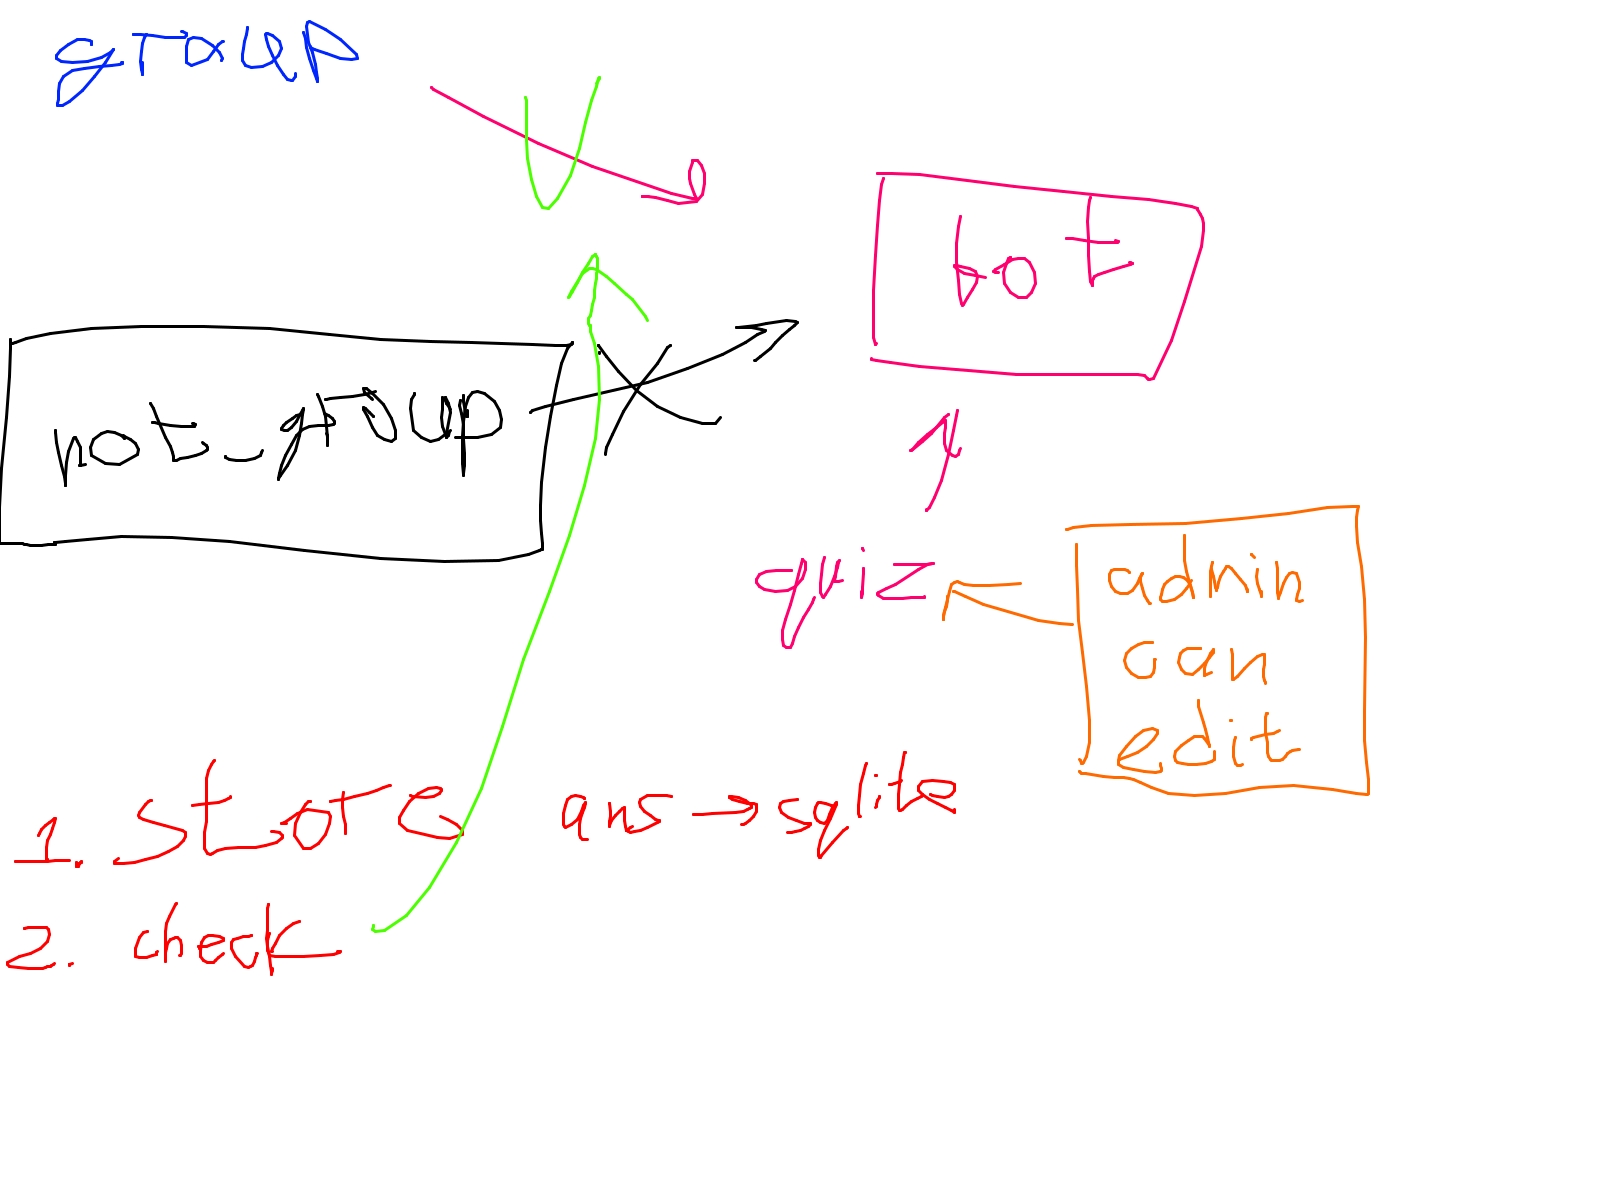 group
bot
not_group
quiz
admin
can
edit
1. store ans → sqlite
2. check